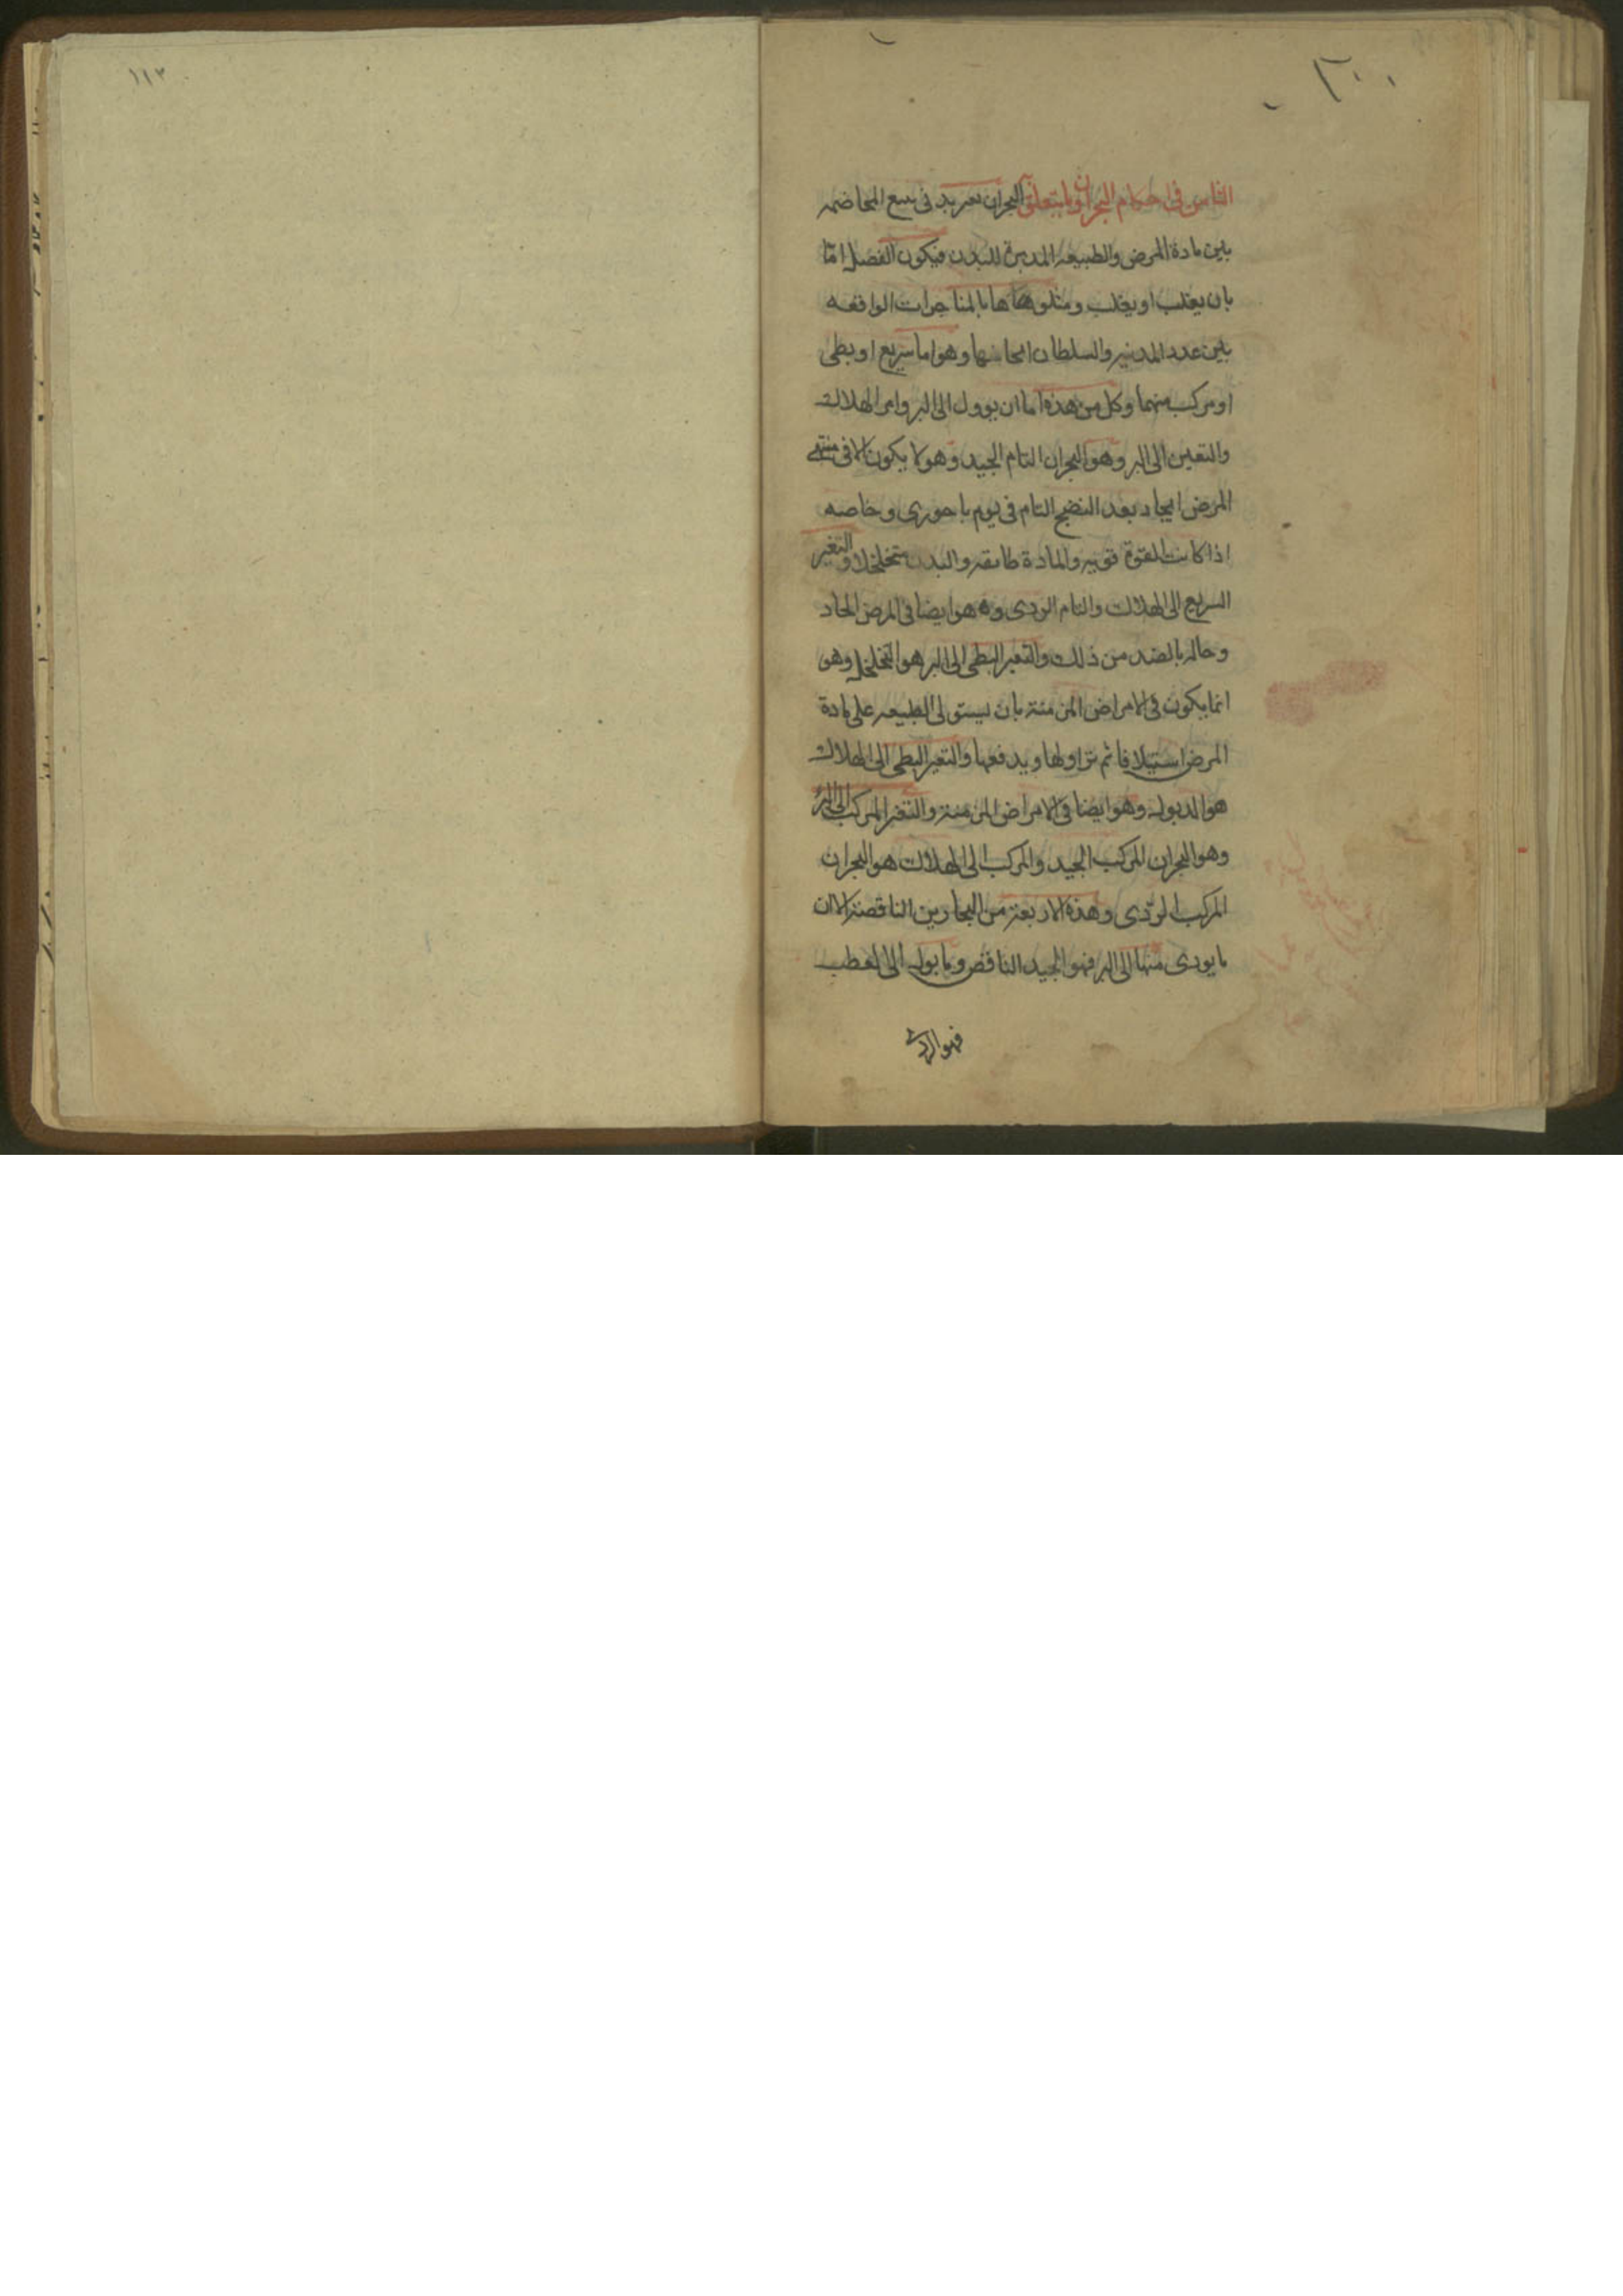 الثامن فى احكام البحران وما يتعلق البحران تغير يدفى سبع المخاضمه
بين مادة المرض والطبيعه المدبرة للبدن فيكون الفصل امّا
بان يغلب او يغلب ومثلوهما هاهنا بالمناجرات الواقعه
بين عدد المدنيه والسلطان الحا منها وهو اما سريع او بطى
او مركب منهما وكل من هذه اما ان يوول الى البر وامر الهلاك
والتغير الى البر وهو البحران التام الجيد وهو لا يكون الا فى منتهى
المرض الحاد بعد النضج التام فى يوم باحورى وخاصه
اذا كانت القوة قويه والمادة طايقه والبدن متخلخلا والتغير
السريع الى الهلاك والتام الردى وهو ايضا فى المرض الحاد
وحاله بالضد من ذلك والتغير البطى الى البر هو التخلخل وهو
انما يكون فى الامراض المزمنة بان يستولى الطبيعه على مادة
المرض استيلا فا ثم تزاولها ويدفعها والتغير البطى الى الهلاك
هو الدبوله وهو ايضا فى الامراض المزمنة والتغير المركب الى البر
وهو البحران المركب الجيد والمركب الى الهلاك هو البحران
المركب الردى وهذه الاربعة من البحارين الناقصة الا ان
ما يودى منها الى البر فهو الجيد الناقص وما يول الى العطب
فهو الردى
١١٣